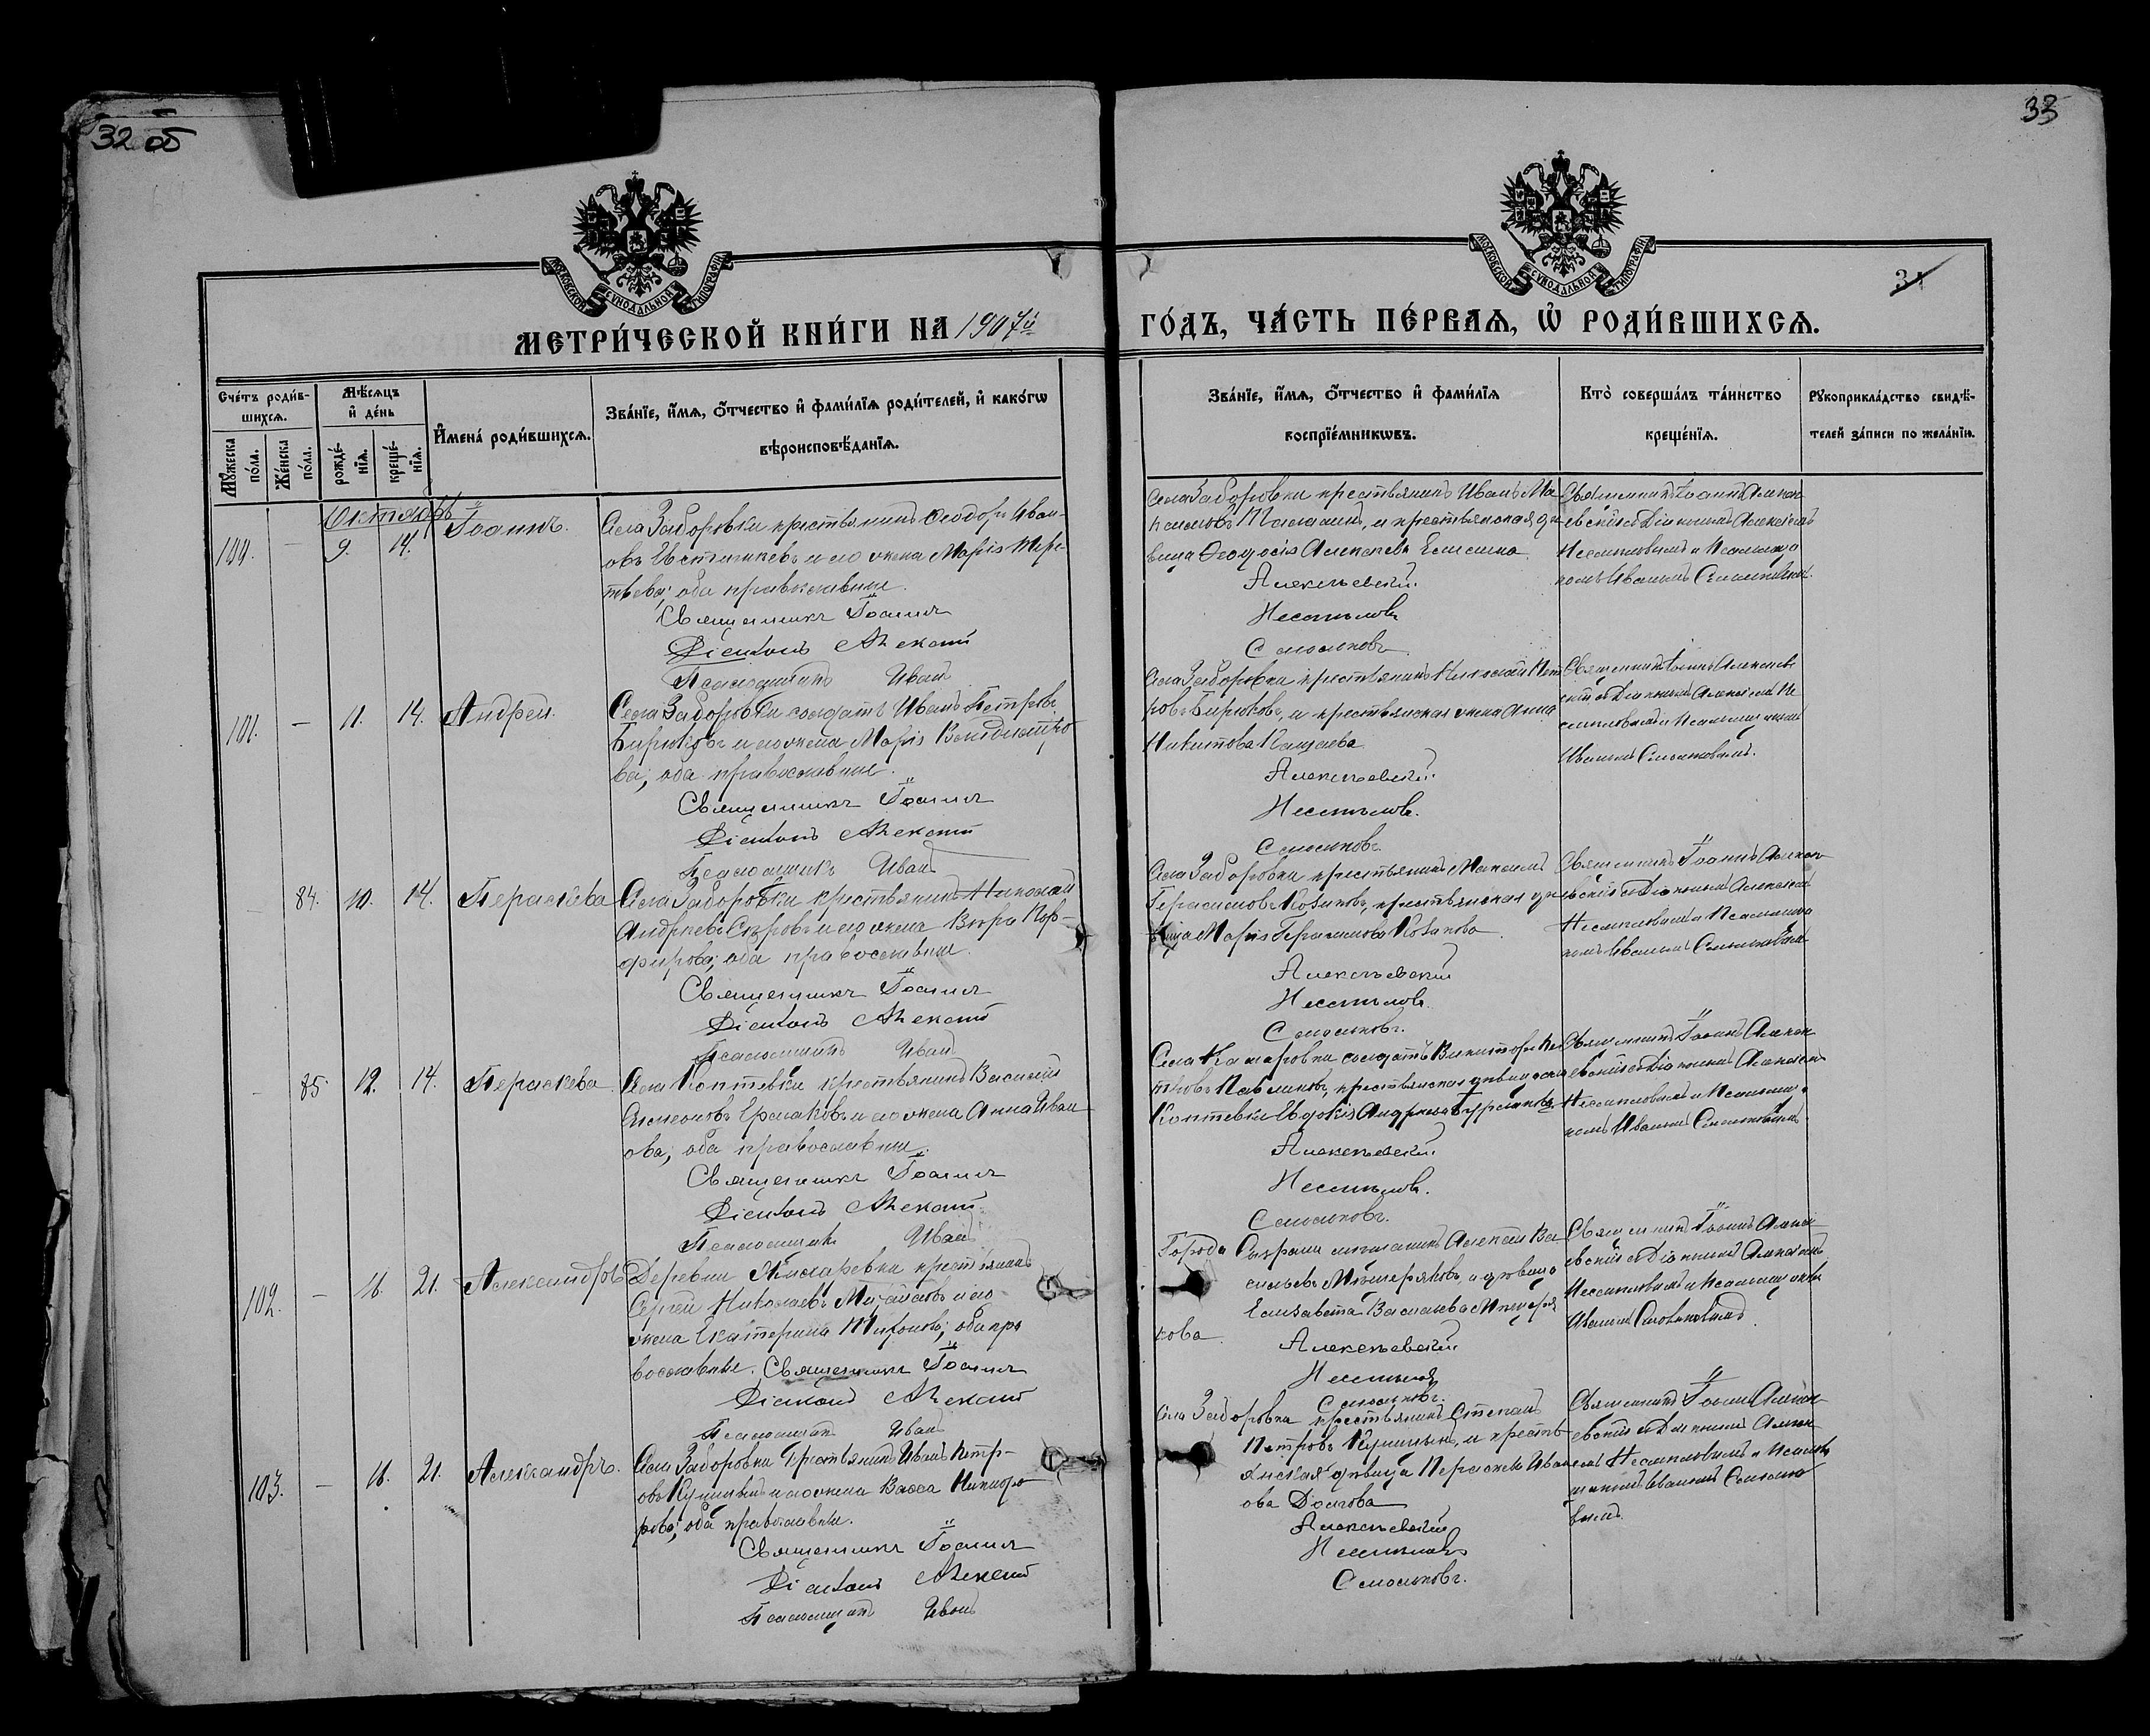 32 об
33
31
МОСКОВСКОЙ СѴНОДАЛЬНОЙ ТИПОГРАФІИ
МОСКОВСКОЙ СѴНОДАЛЬНОЙ ТИПОГРАФІИ
МЕТРИ́ЧЕСКОЙ КНИ́ГИ НА 1907й
ГО́ДЪ, ЧА́СТЬ ПЕ́РВАѦ, Ѡ҆ РОДИ́ВШИХСѦ.
Сче́тъ роди́в-
шихсѧ.
Мꙋ́жеска по́ла.
Же́нска по́ла.
Мѣ́сѧцъ
и҆ де́нь
рожде́-
нїѧ.
креще́-
нїѧ.
И҆мена̀ роди́вшихсѧ.
Зва́нїе, и҆́мѧ, ѻ҆́тчество и҆ фами́лїѧ роди́телей, и҆ како́гѡ
вѣроисповѣ́данїѧ.
Зва́нїе, и҆́мѧ, ѻ҆́тчество и҆ фами́лїѧ
воспрїе́мникѡвъ.
Кто̀ соверша́лъ та́инство
креще́нїѧ.
Рꙋкоприкла́дство свидѣ́-
телей за́писи по жела́нїю.
Октябрь
100. — 9. 14. Іоаннъ.
Села Заборовки крестьянинъ Ѳеодоръ Иван-
овъ и его жена Марія Тере-
тьева; оба православные.
Священникъ Іоаннъ
Діаконъ Алексій
Псаломщикъ Иванъ
Села Заборовки крестьянинъ Иванъ
и крестьянская дѣ-
вица Ѳеодосія Алексѣева
Алексѣевскій.
Несмѣловъ
Смольковъ
Священникъ Іоаннъ Алексѣ-
евскій съ Діакономъ Алексіемъ
Несмѣловымъ и Псаломщи-
комъ Иваномъ Смольковымъ.
101. — 11. 14. Андрей.
Села Заборовки солдатъ Иванъ Петровъ
Бирюковъ и его жена Марія
ва; оба православные.
Священникъ Іоаннъ
Діаконъ Алексій
Псаломщикъ Иванъ
Села Заборовки крестьянинъ Николай Пет-
ровъ Бирюковъ, и крестьянская жена Анна
Никитова
Алексѣевскій.
Несмѣловъ.
Смольковъ
Священникъ Іоаннъ Алексѣев-
скій съ Діакономъ Алексіемъ Не-
смѣловымъ и Псаломщикомъ
Иваномъ Смольковымъ.
— 84. 10. 14. Перасковa
Села Заборовки крестьянинъ Николай
Андреевъ и его жена Вѣра Пор-
фирова; оба православные.
Священникъ Іоаннъ
Діаконъ Алексій
Псаломщикъ Иванъ
Села Заборовки крестьянинъ Максимъ
Герасимовъ крестьянская дѣ-
вица Марія Герасимова
Алексѣевскій
Несмѣловъ
Смольковъ.
Священникъ Іоаннъ Алексѣ-
евскій съ Діакономъ Алексіемъ
Несмѣловымъ и Псаломщи-
комъ Иваномъ Смольковымъ
- 85. 12. 14. Пераскева
Села Коптевки крестьянинъ Василій
Ермаковъ и его жена Анна Иван-
ова; оба православные.
Священникъ Іоаннъ
Діаконъ Алексій
Псаломщикъ Иванъ
Села солдатъ
крестьянская дѣвица села
Коптевки Евдокія Андреева
Алексѣевскій.
Несмѣловъ.
Смольковъ.
Священникъ Іоаннъ Алексѣ-
евскій съ Діакономъ Алексіемъ
Несмѣловымъ и Псаломщи-
комъ Иваномъ Смольковымъ.
102. — 16. 21. Александръ
Деревни крестьянинъ
Сергѣй Николаевъ и его
жена Екатерина оба пра-
вославные. Священникъ Іоаннъ
Діаконъ Алексій
Псаломщикъ Иванъ
Города Сызрани мѣщанинъ Алексѣй Ва-
сильевъ Мещеряковъ, и дѣвица
Елизавета Васильева Мещеря-
кова.
Алексѣевскій
Несмѣловъ
Смольковъ.
Священникъ Іоаннъ Алексѣ-
евскій съ Діакономъ Алексіемъ
Несмѣловымъ и Псаломщикомъ
Иваномъ Смольковымъ.
103. — 16. 21. Александръ.
Села Заборовки крестьянинъ Иванъ Петр-
овъ и его жена Васса Никифо-
рова; оба православные.
Священникъ Іоаннъ
Діаконъ Алексій
Псаломщикъ Иванъ
Села Заборовки крестьянинъ Степанъ
Петровъ и кресть-
янская дѣвица Пераскева Иван-
ова Долгова
Алексѣевскій
Несмѣловъ
Смольковъ.
Священникъ Іоаннъ Алексѣ-
евскій съ Діакономъ Алек-
сіемъ Несмѣловымъ и Псалом-
щикомъ Иваномъ Смолько-
вымъ.